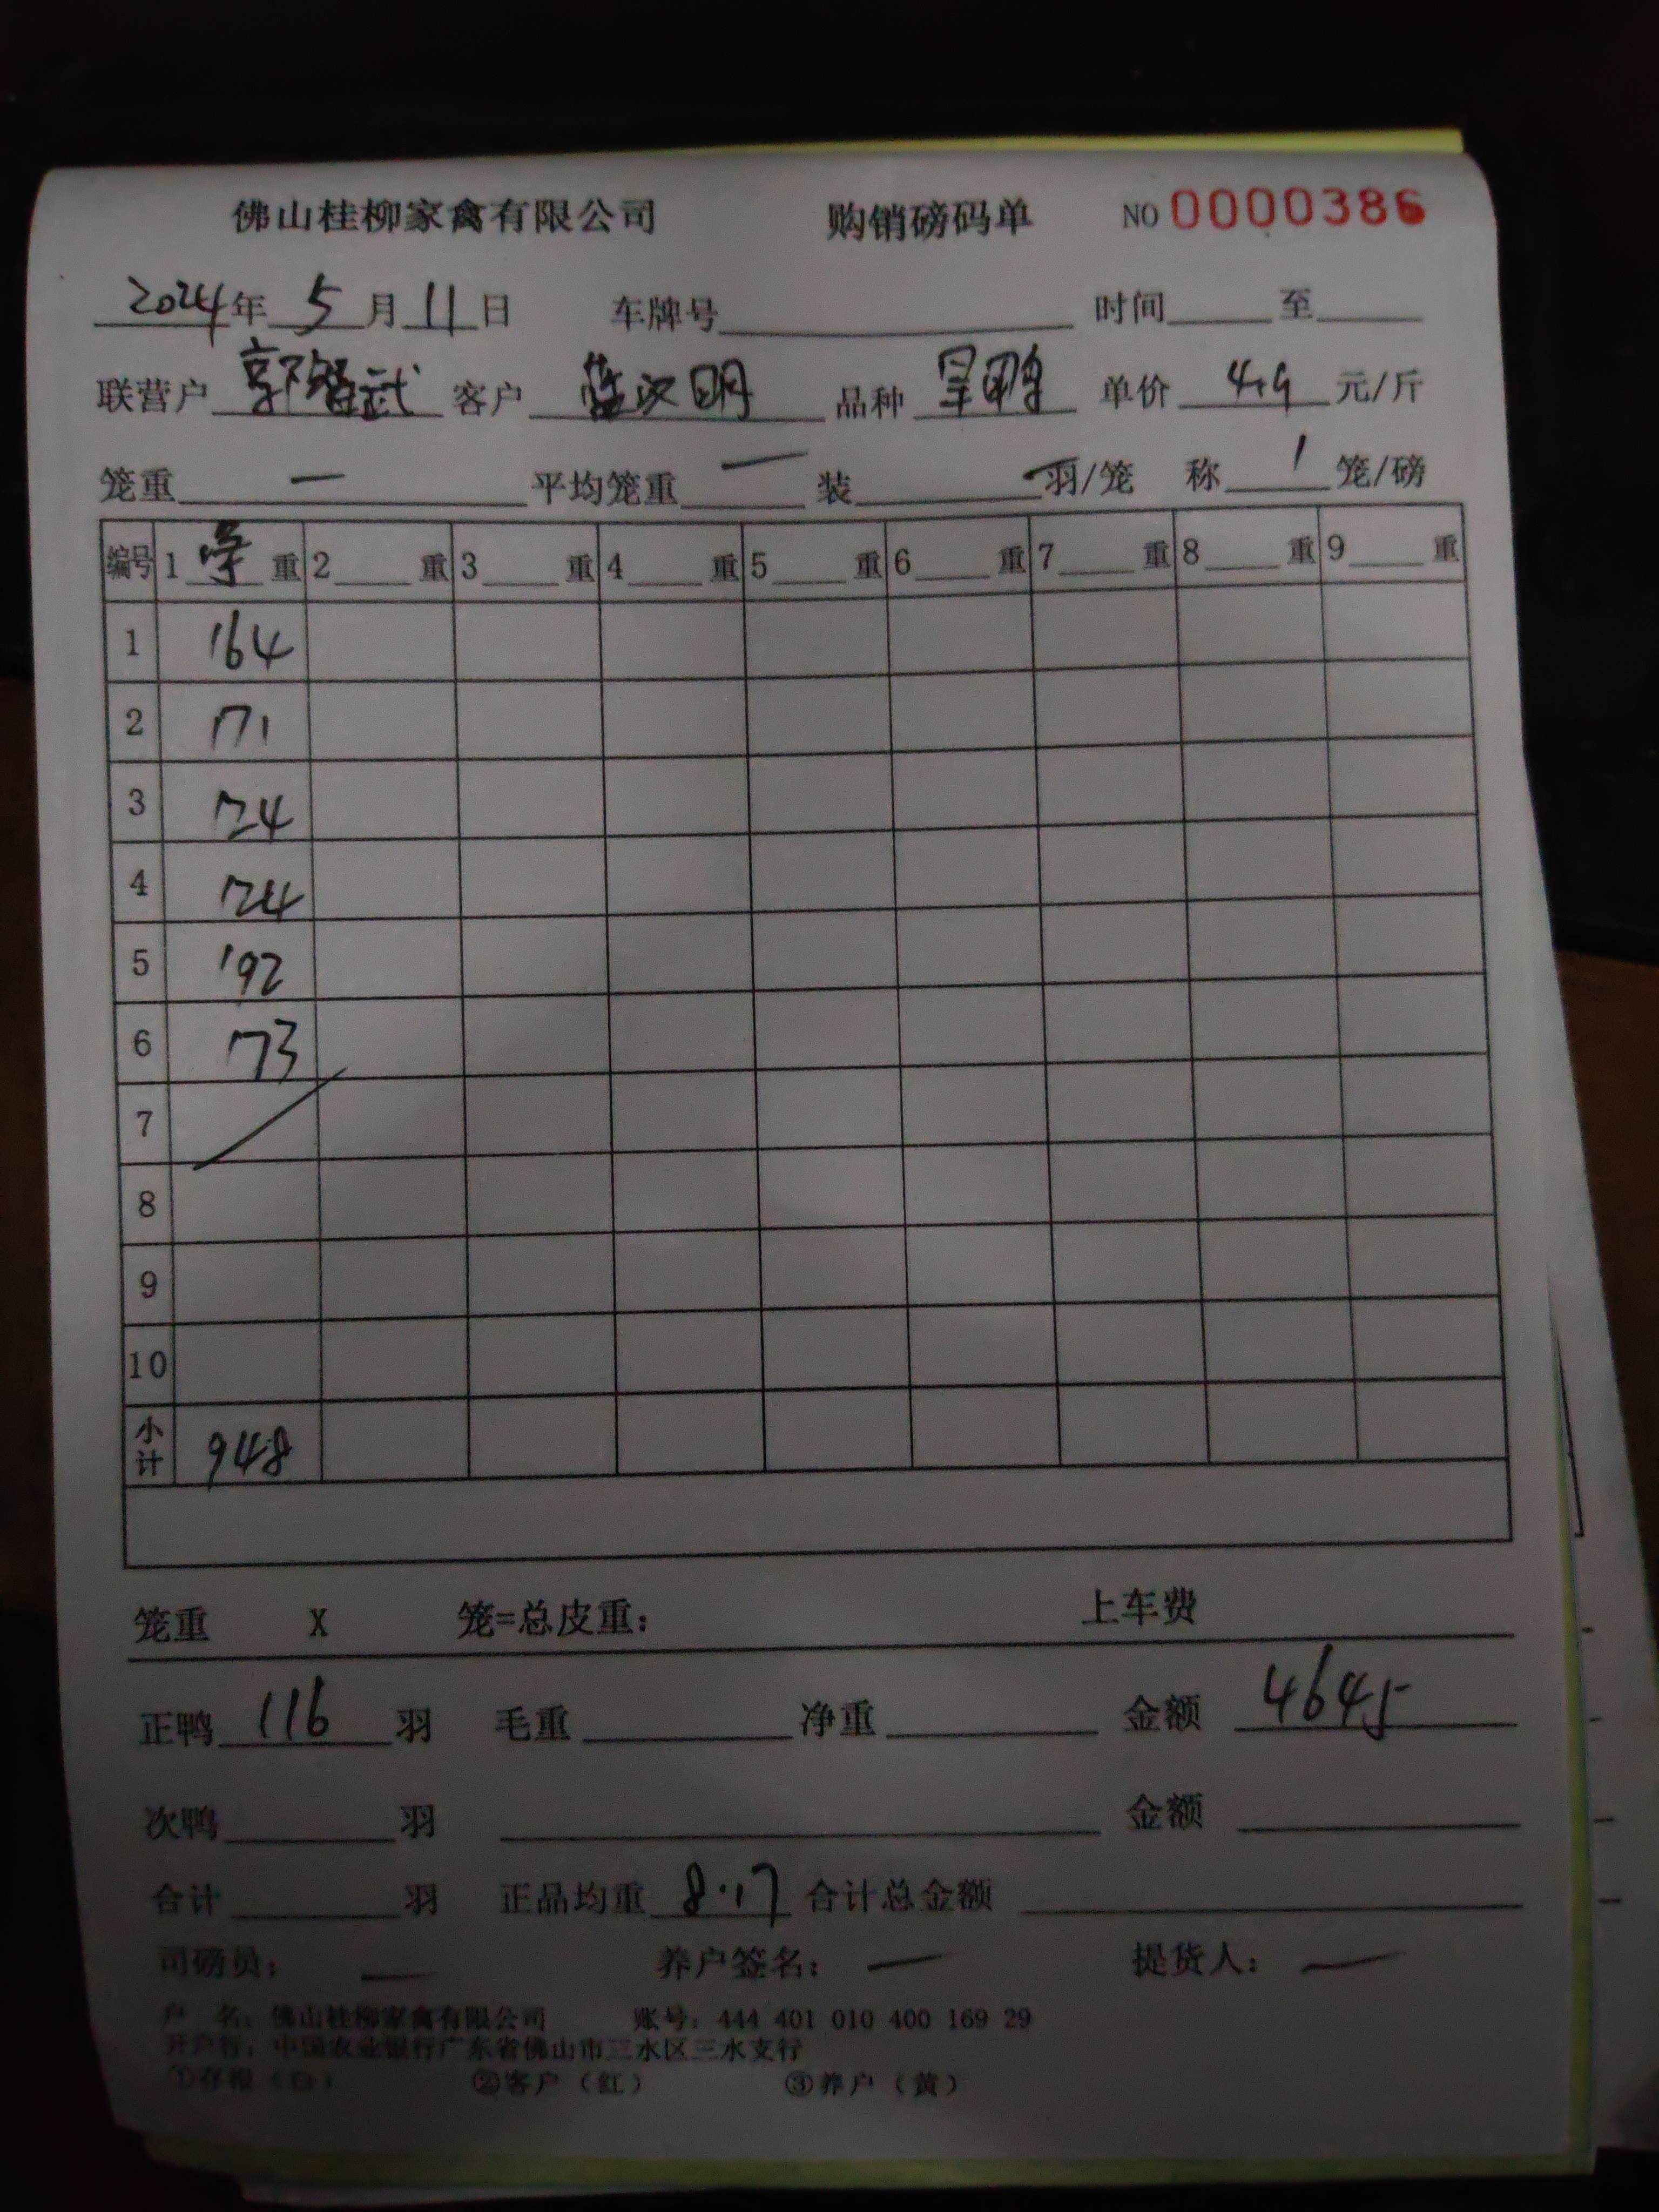 佛山桂柳家禽有限公司 购销磅码单 NO 0000386
2024年 5 月 11 日 车牌号 时间 至
联营户 郭智武 客户 蓝汉明 品种 旱鸭 单价 4.9 元/斤
笼重 一 平均笼重 一 装 一 羽/笼 称 1 笼/磅
编号 1 净 重 2 重 3 重 4 重 5 重 6 重 7 重 8 重 9 重
1 164
2 171
3 124
4 124
5 192
6 173
7
8
9
10
小计 948
笼重 X 笼=总皮重: 上车费
正鸭 116 羽 毛重 净重 金额 4645
次鸭 羽 金额
合计 羽 正品均重 8.17 合计总金额
司磅员: 一 养户签名: 一 提货人: 一
户 名: 佛山桂柳家禽有限公司 账号: 444 401 010 400 169 29
开户行: 中国农业银行广东省佛山市三水区三水支行
①存根(白) ②客户(红) ③养户(黄)